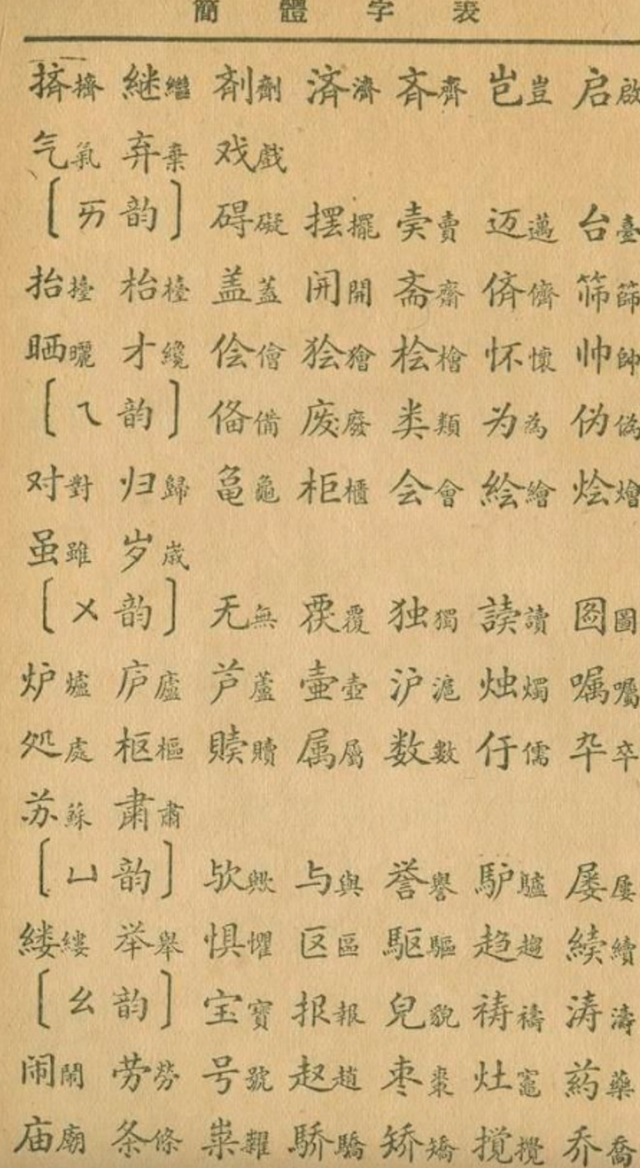 簡體字表
挤擠 継繼 剤劑 済濟 斉齊 岂豈 启啟
气氣 弃棄 戏戲
[ㄞ韵] 碍礙 摆擺 卖賣 迈邁 台臺
抬擡 枱檯 盖蓋 開開 斋齋 侪儕 筛篩
晒曬 才纔 侩儈 狯獪 桧檜 怀懷 帅帥
[ㄟ韵] 俻備 废廢 类類 为為 伪偽
对對 归歸 亀龜 柜櫃 会會 絵繪 烩燴
虽雖 岁歲
[ㄨ韵] 无無 覆 独獨 読讀 図圖
炉爐 庐廬 芦蘆 壷壺 沪滬 烛燭 嘱囑
処處 枢樞 贖 属屬 数數 伃儒 卆卒
苏蘇 粛肅
[ㄩ韵] 欤歟 与與 誉譽 馿驢 屡屢
缕縷 举舉 惧懼 区區 駆驅 趋趨 続續
[ㄠ韵] 宝寶 报報 皃貌 祷禱 涛濤
闹鬧 劳勞 号號 赵趙 枣棗 灶竈 药藥
庙廟 条條 粜糶 骄驕 矫矯 搅攪 乔喬